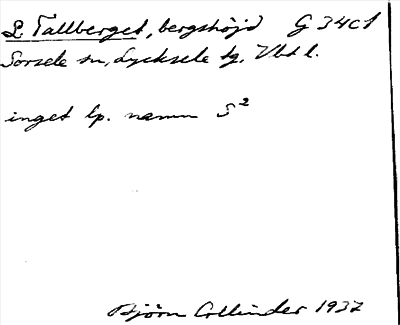 L Tallberget, bergshöjd G 34c1
Sorsele sn, Lycksele tg. Vbt l.
inget lp. namn S²
Björn Collinder 1937